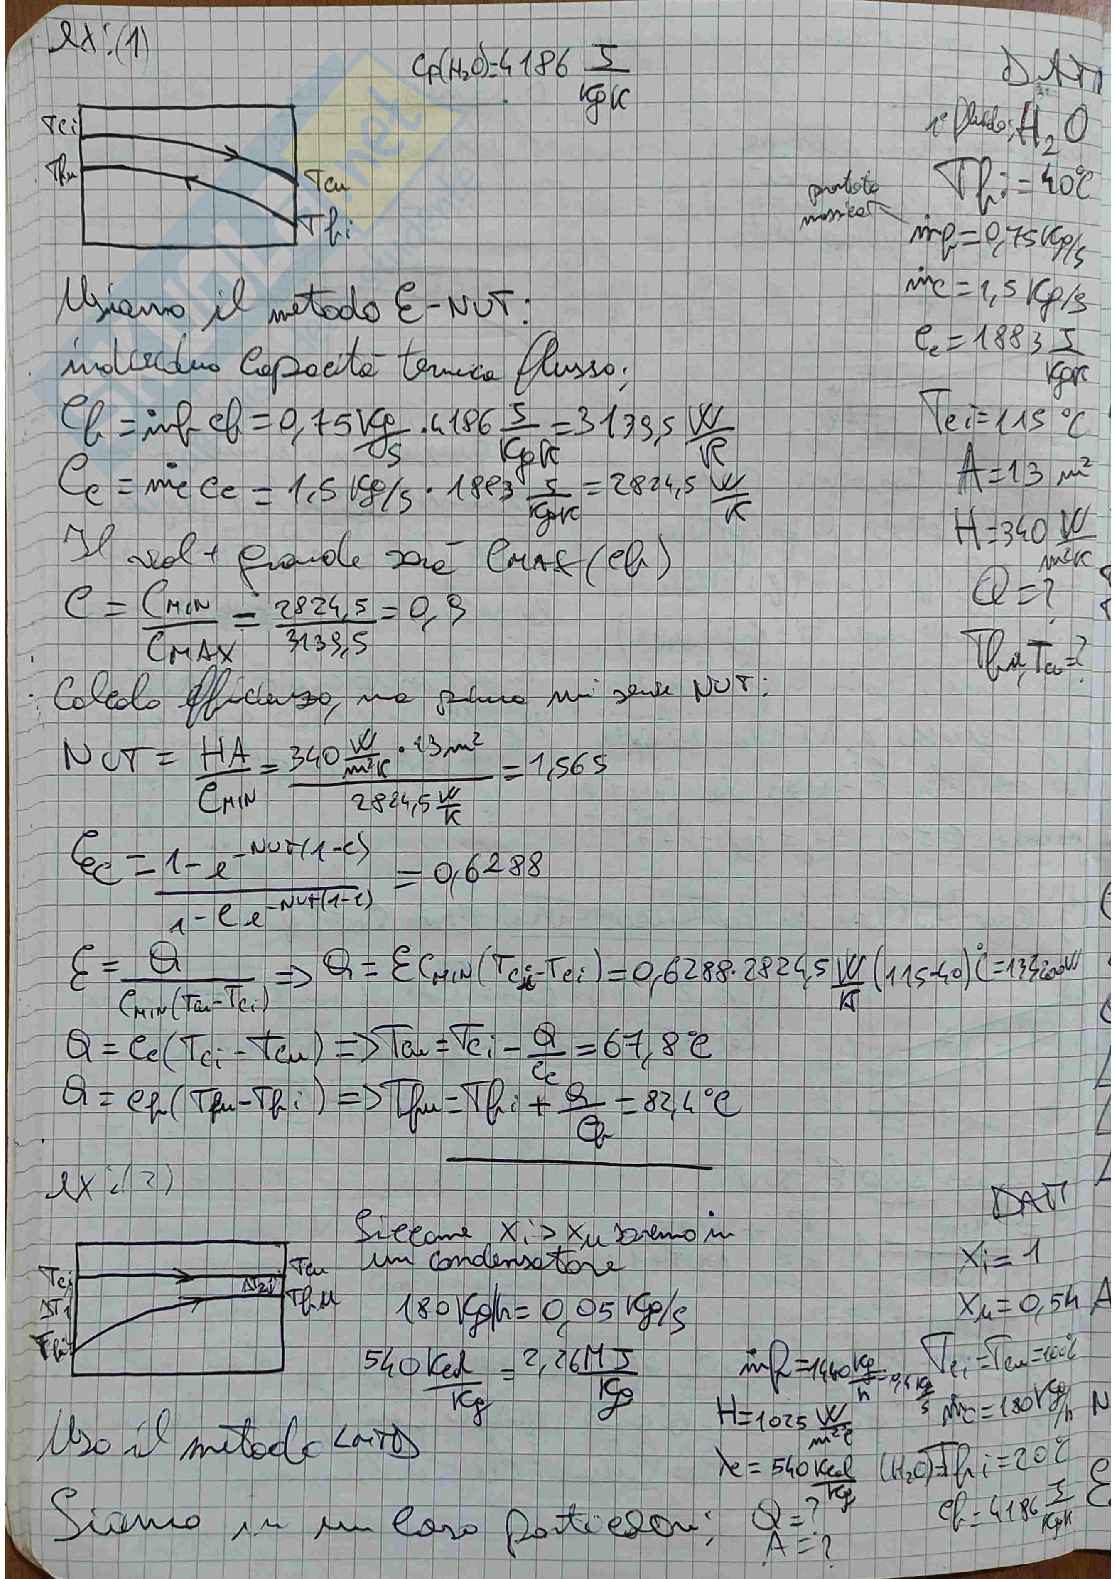 ex:(1)
Cp(H₂O)=4186 J/KgK
DATI
1° fluido: H₂O
Tci
Tfu
Tcu
Tfi
Tfi=40°C
portata massica
ṁf=0,75Kg/s
ṁc=1,5Kg/s
Cc=1883 J/KgK
Tci=115°C
A=13 m²
H=340 W/m²K
Q=?
Tfu,Tcu=?
Usiamo il metodo ε-NUT:
individuo Capacità termica flusso:
Cf=ṁf cf=0,75 Kg/s · 4186 J/KgK = 3139,5 W/K
Cc=ṁc cc=1,5Kg/s · 1883 J/KgK = 2824,5 W/K
Il val + grande sarà CMAX (Cf)
C = CMIN/CMAX = 2824,5/3139,5 = 0,9
Calcolo efficienza, ma prima mi serve NUT:
NUT = HA/CMIN = 340 W/m²K · 13m² / 2824,5 W/K = 1,565
εcc = 1-e^-NUT(1-c) / 1-c e^-NUT(1-c) = 0,6288
ε = Q/CMIN(Tcu-Tci) => Q = ε CMIN(Tci-Tci)=0,6288·2824,5 W/K (115-40)°C=133200W
Q = Cc(Tci-Tcu) => Tcu=Tci - Q/Cc = 67,8°C
Q = Cf(Tfu-Tfi) => Tfu=Tfi + Q/Cf = 82,4°C
ex:(2)
DATI
Tci
ΔT1
Tfi
Tcu
ΔT2
Tfu
Siccome xi>xu saremo in
un condensatore
180Kg/h=0,05Kg/s
540 Kcal/Kg = 2,26 MJ/Kg
xi=1
xu=0,54
Tci=Tcu=100°C
ṁf=1440 Kg/h=0,4 Kg/s
ṁc=180 Kg/h
H=1025 W/m²°C
λc=540 Kcal/Kg
(H₂O)=Tfi=20°C
cf=4186 J/KgK
Q=?
A=?
Uso il metodo LMTD
Siamo in un caso particolare: